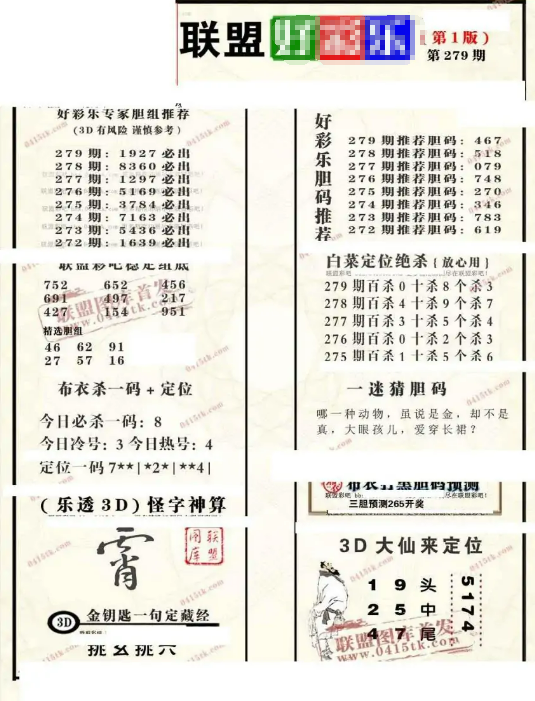 联盟好彩乐
(第1版)
第279期
好彩乐专家胆组推荐
(3D有风险 谨慎参考)
279期：1927必出
278期：8360必出
277期：1297必出
276期：5169必出
275期：3784必出
274期：7163必出
273期：5436必出
272期：1639必出
联盟彩吧稳定组底
752 652 456
691 497 217
427 154 951
精选胆组
46 62 91
27 57 16
布衣杀一码+定位
今日必杀一码：8
今日冷号：3今日热号：4
定位一码7**|*2*|**4|
(乐透3D)怪字神算
霄
联盟图库
3D 金钥匙一句定藏经
挑玄挑穴
好彩乐胆码推荐
279期推荐胆码：467
278期推荐胆码：518
277期推荐胆码：079
276期推荐胆码：748
275期推荐胆码：270
274期推荐胆码：346
273期推荐胆码：783
272期推荐胆码：619
白菜定位绝杀{放心用}
279期百杀0十杀8个杀3
278期百杀4十杀9个杀7
277期百杀3十杀5个杀4
276期百杀0十杀2个杀3
275期百杀1十杀5个杀6
一迷猜胆码
哪一种动物，虽说是金，却不是
真，大眼孩儿，爱穿长裙？
布衣打黑胆码预测
三胆预测265开奖
3D大仙来定位
1 9 头
2 5 中
4 7 尾
5174
联盟图库首发
www.0415tk.com